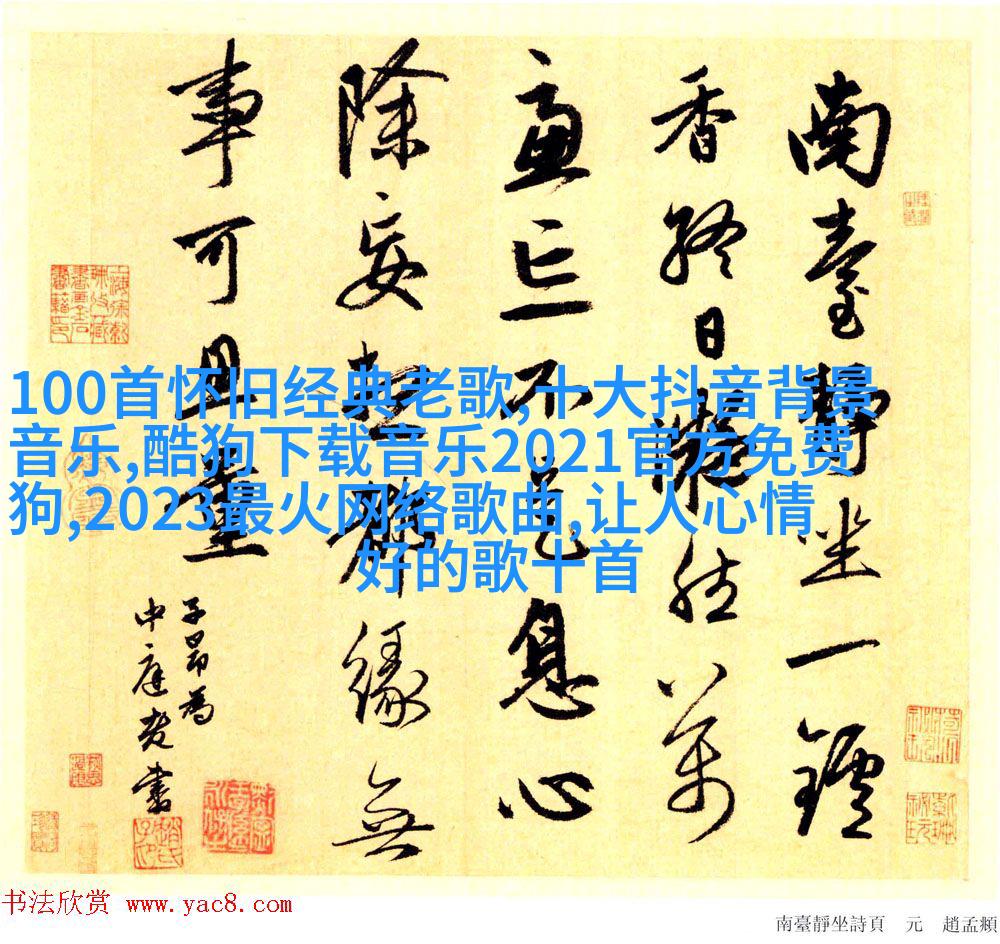 南臺靜坐一鑪
香終日凝然萬
慮亡不是息心
除妄想都緣無
事可量
子昂為
中庭書
100首怀旧经典老歌,十大抖音背景
音乐,酷狗下载音乐2021官方免费
狗,2023最火网络歌曲,让人心情
好的歌十首
书法欣赏 www.yac8.com
南臺靜坐詩頁 元 趙孟頫